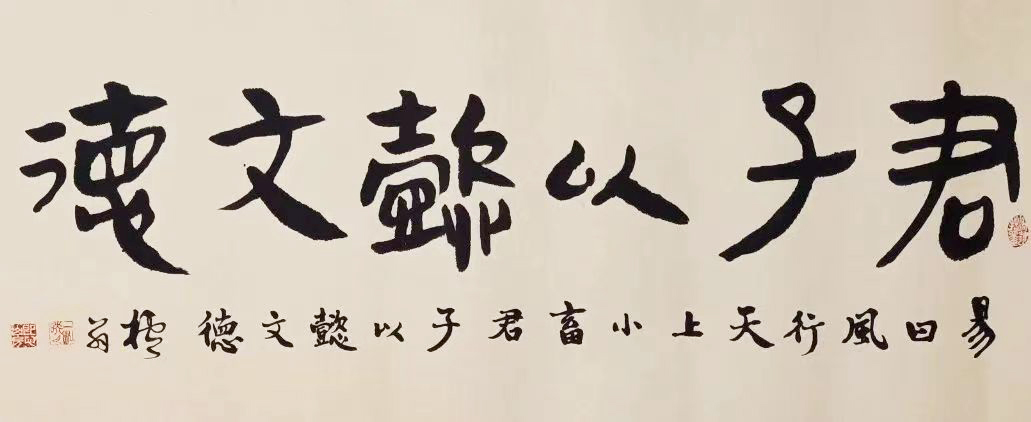 君子以懿文德
易曰風行天上小畜君子以懿文德